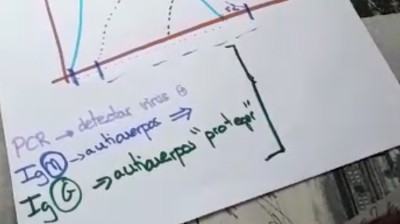 PCR → detectar virus ⊕
IgM → anticuerpos ⇒
IgG → anticuerpos "proteger"